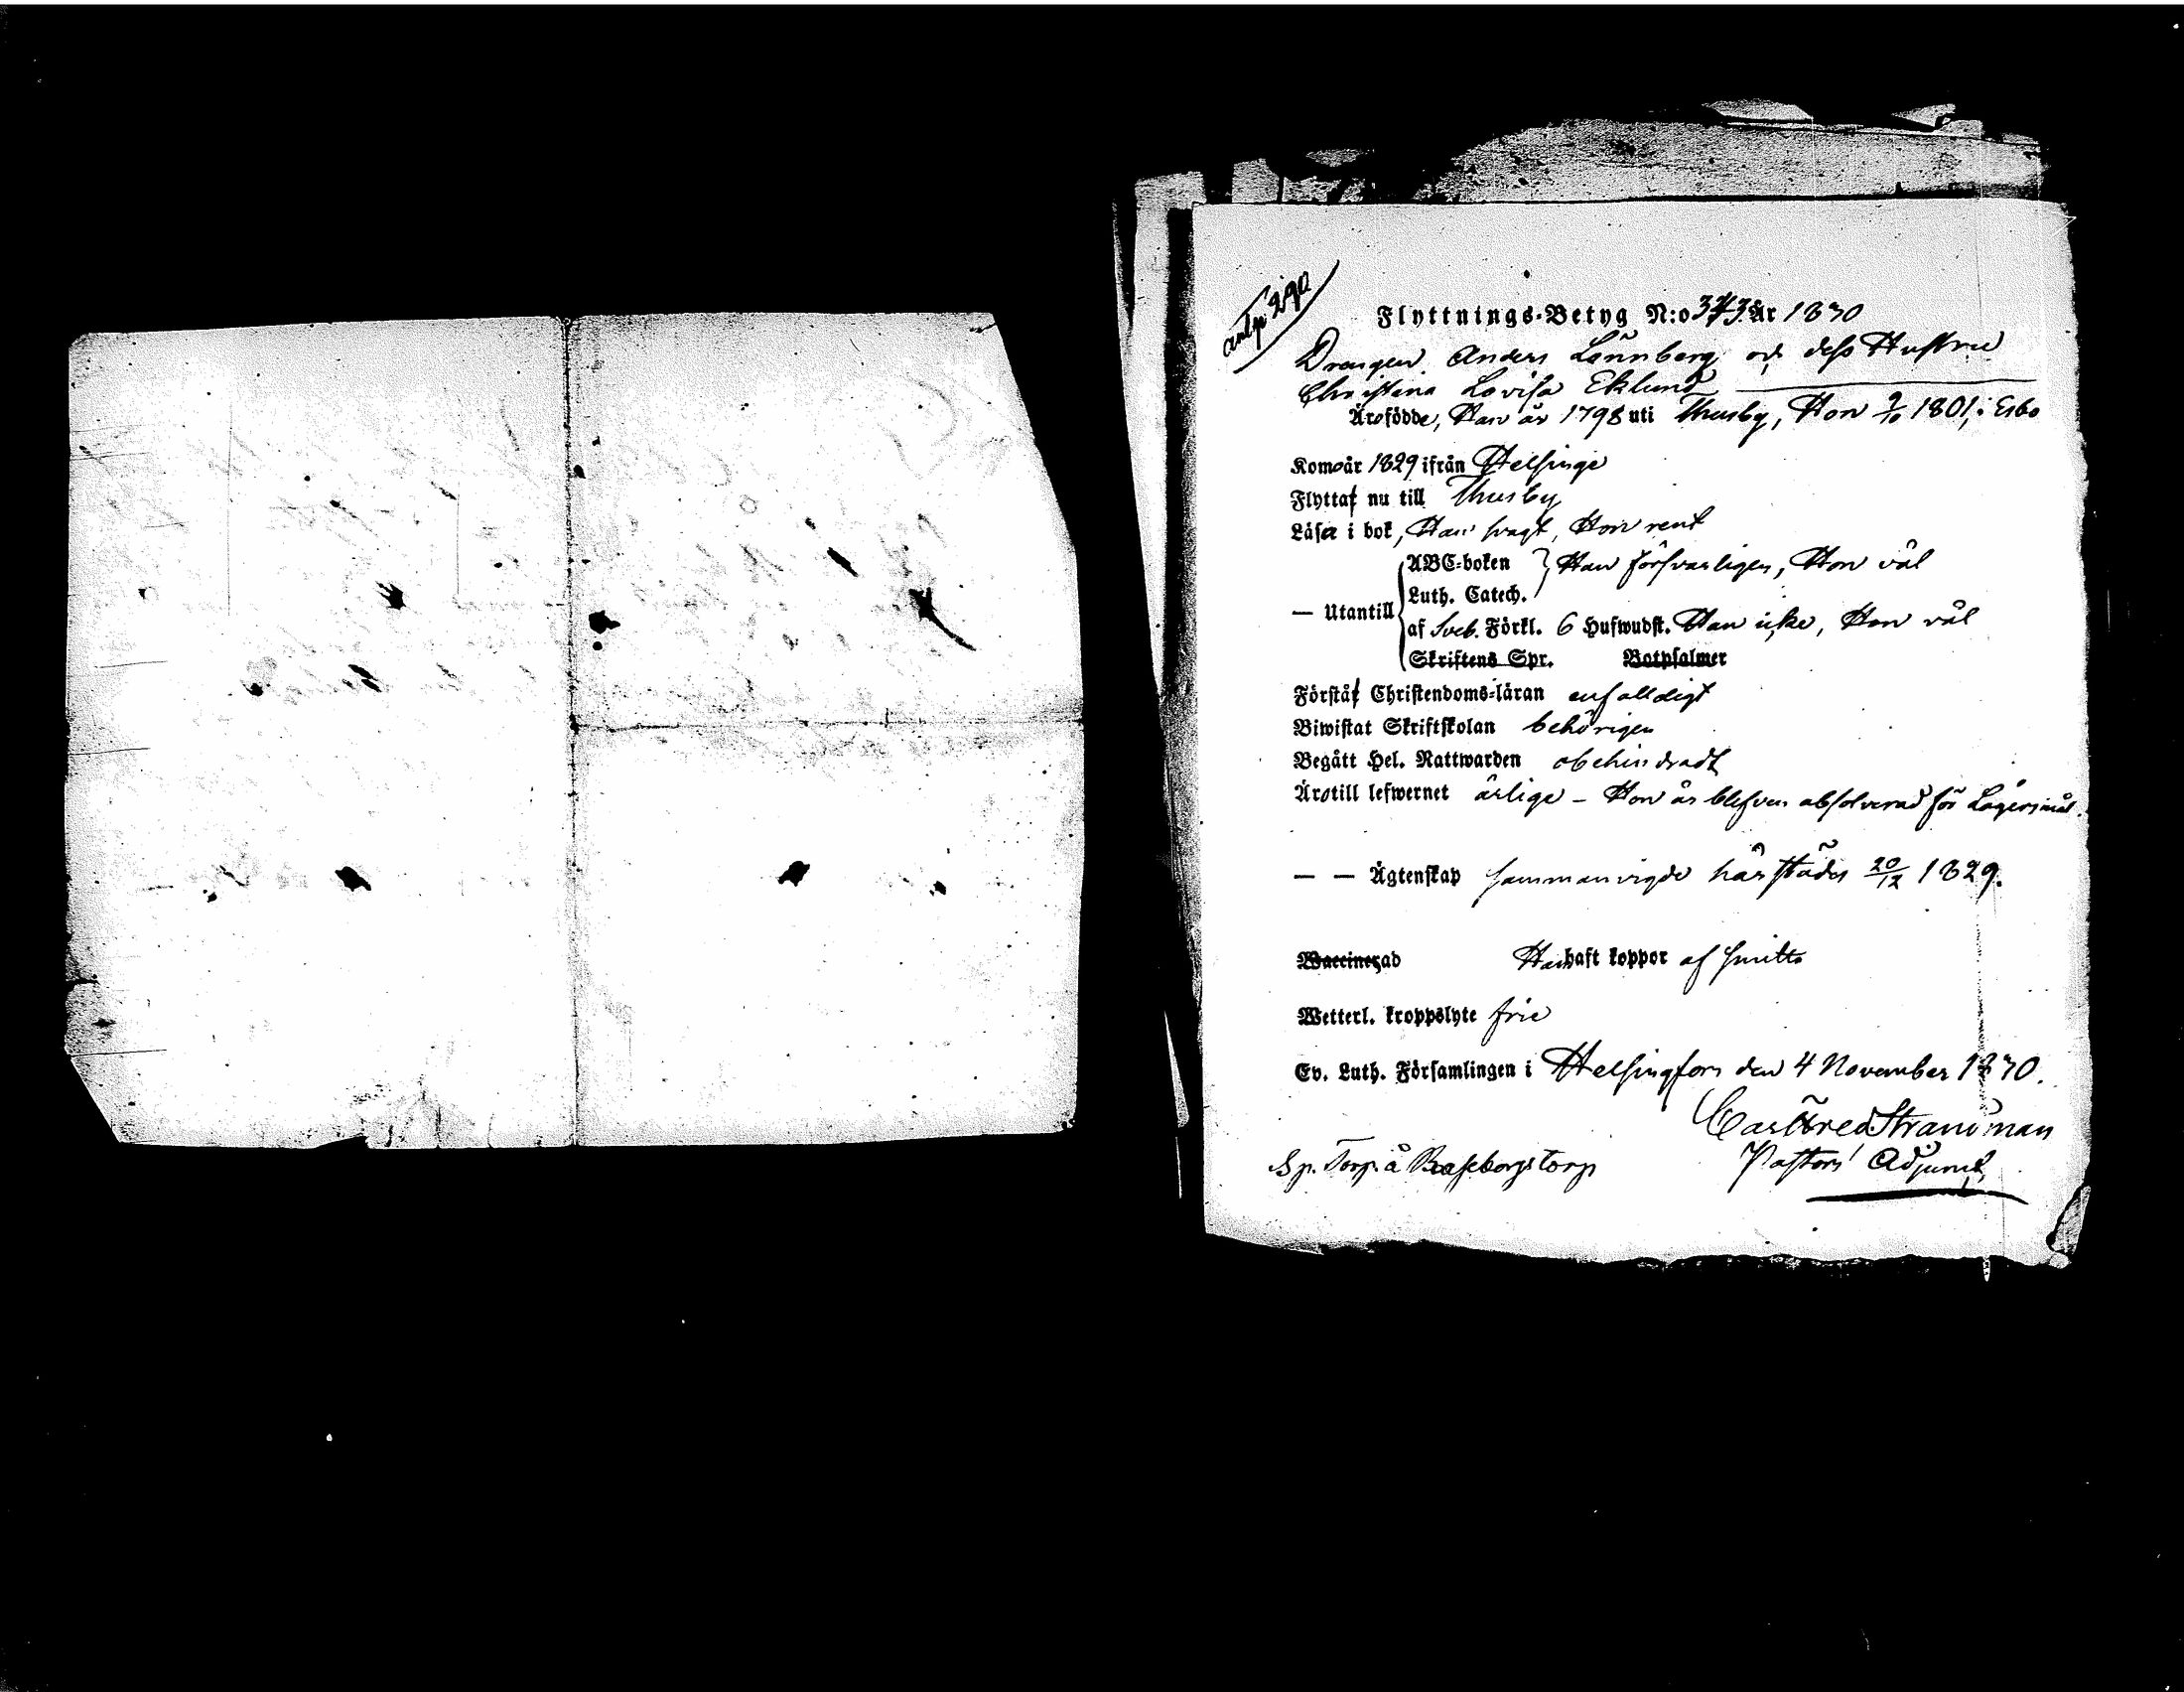 antp 290
Flyttnings-Betyg N:o 343 År 1830
Drengen Anders Lönnberg och dess Hustru
Christina Lovisa Eklund
Äro födde, Han år 1798 uti Thusby, Hon 9/10 1801, i Esbo
Komo år 1829 ifrån Helsinge
Flytta nu till Thusby
Läsa i bok, Han svagt, Hon rent
ABC-boken } Han försvarligen, Hon väl
Luth. Catech.
— Utantill
af Sveb. Förkl. 6 Hufwudst. Han icke, Hon väl
Skriftens Spr. Botpsalmer
Förstå Christendoms-läran enfalldigt
Biwistat Skriftskolan behörigen
Begått Hel. Nattwarden obehindradt
Äro till lefwernet ärlige – Hon är blefven absolverad för Lägersmål.
— — Ägtenskap sammanvigde härstädes 20/12 1829.
Waccinerad Ha haft koppor af smitto
Wetterl. kroppslyte frie
Ev. Luth. Församlingen i Helsingfors den 4 November 1830.
Carl Fred Strandman
Sp. Torp. å Raseborgs torp Pastors Adjunct